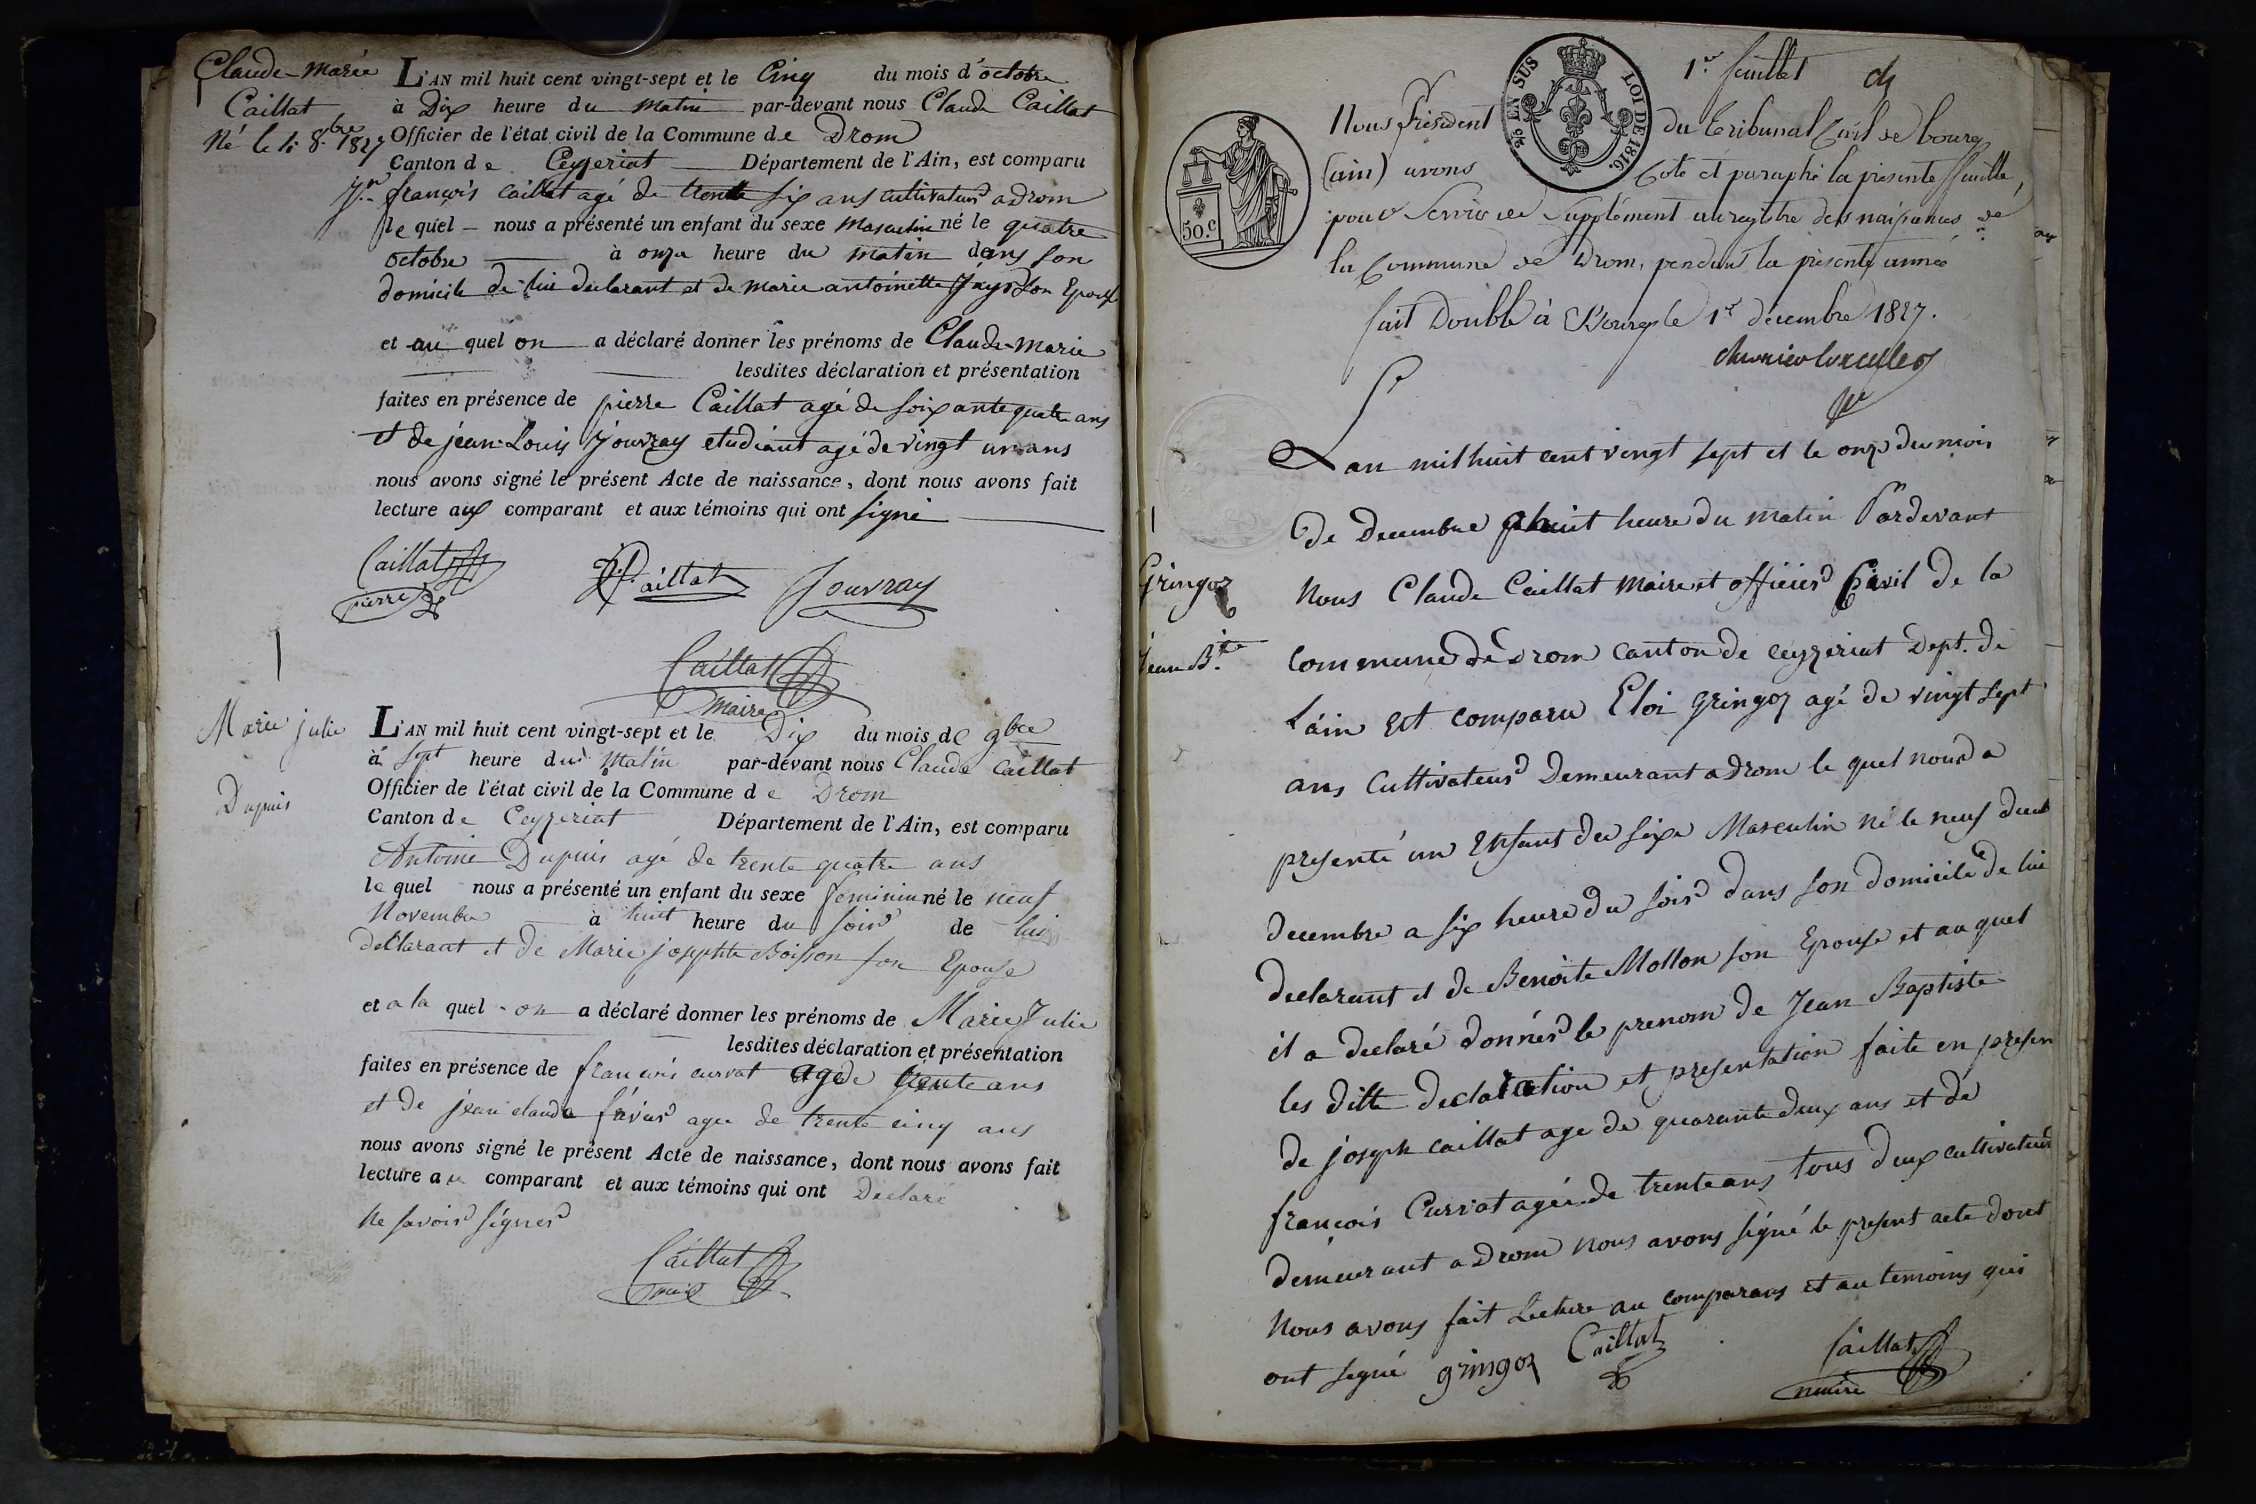 Claude-Marie
Caillat
Né le 4 8.bre 1827
L'AN mil huit cent vingt-sept et le Cinq du mois d'octobre
à Dix heure du matin par-devant nous Claude Caillat
Officier de l'état civil de la Commune de Drom
Canton de Ceyzeriat Département de l'Ain, est comparu
françois caillat agé de trente six ans cultivateur a drom
le quel nous a présenté un enfant du sexe masculin né le quatre
octobre à onze heure du matin dans son
domicile de lui declarant et de marie antoinette Jays son Epouse
et au quel on a déclaré donner les prénoms de Claude-Marie
lesdites déclaration et présentation
faites en présence de pierre Caillat agé de soixante quatre ans
et de jean-Louis Jouvray etudiant agé de vingt un ans
nous avons signé le présent Acte de naissance, dont nous avons fait
lecture aux comparant et aux témoins qui ont signé
Caillat
pierre
Caillat
Jouvray
Caillat
maire
Marie julie
Dupuis
L'AN mil huit cent vingt-sept et le Dix du mois de 9bre
à sept heure du matin par-devant nous Claude caillat
Officier de l'état civil de la Commune de Drom
Canton de Ceyzeriat Département de l'Ain, est comparu
Antoine Dupuis agé de trente quatre ans
le quel nous a présenté un enfant du sexe feminin né le neuf
Novembre à huit heure du soir de lui
declarant et de Marie josephte Boisson son Epouse
et a la quel on a déclaré donner les prénoms de Marie Julie
lesdites déclaration et présentation
faites en présence de françois curvat agé de trente ans
et de jean claude agé de trente cinq ans
nous avons signé le présent Acte de naissance, dont nous avons fait
lecture au comparant et aux témoins qui ont Déclaré
Ne savoir signer
Caillat
maire
1.er feuillet
EN SUS LOI DE 1816.
50.c
Nous Président du Tribunal Civil de bourg
(ain) avons Coté et paraphé la présente feuille,
pour Servir de Supplément au registre des naissances de
la Commune de Drom, pendant la présente année
fait Double à Bourg le 1er decembre 1827.
Lan mil huit cent vingt sept et le onze du mois
De Decembre a huit heure du matin Pardevant
Gringoz
Jean B.te
Nous Claude Caillat Maire et officier Civil de la
Commune de Drom Canton de Ceyzeriat Dept. de
Lain est comparu Eloi Gringoz agé de vingt sept
ans Cultivateur Demeurant a Drom le quel nous a
presenté un Enfant du sexe Masculin né le neuf dud
decembre a six heure du soir dans son domicile de lui
declarant et de Benoite Mollon son Epouse et au quel
il a declaré donner le prenom de Jean Baptiste
les ditte declaration et presentation faite en presen
de joseph caillat age de quarante deux ans et de
françois Curvat agée de trente ans tous deux cultivateur
demeurant a Drom nous avons signé le present acte dont
Nous avons fait Lecture au comparans et au temoins qui
ont signé gringoz Caillat
Caillat
maire